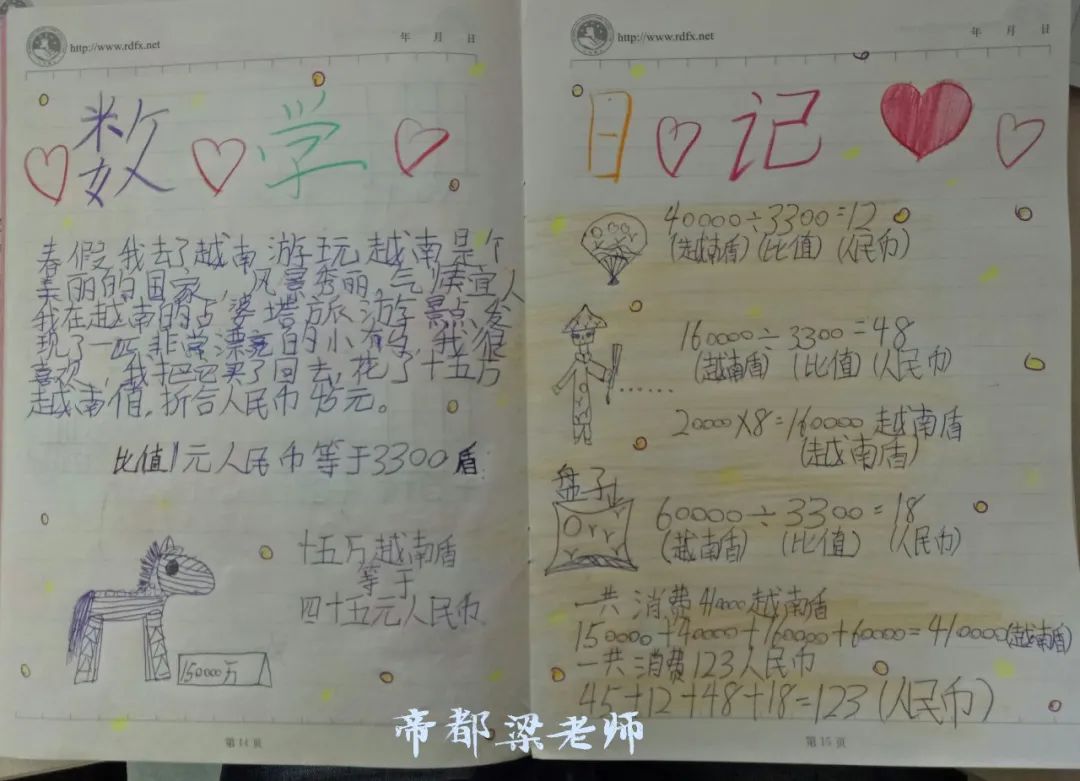 http://www.rdfx.net
年 月 日
数 学
春假,我去了越南游玩,越南是个
美丽的国家,风景秀丽,气候宜人
我在越南的占婆塔旅游景点,发
现了一匹非常漂亮的小布马,我很
喜欢,我把它买了回去,花了十五万
越南盾,折合人民币45元。
比值1元人民币等于3300盾.
十五万越南盾
等于
四十五元人民币
150000万
第14页
http://www.rdfx.net
年 月 日
日 记
40000÷3300=12
(越南盾)(比值)(人民币)
160000÷3300=48
(越南盾)(比值)(人民币)
20000×8=160000越南盾
(越南盾)
盘子
60000÷3300=18
(越南盾)(比值)(人民币)
一共消费41000越南盾
150000+40000+160000+60000=410000(越南盾)
一共消费123人民币
45+12+48+18=123(人民币)
第15页
帝都梁老师